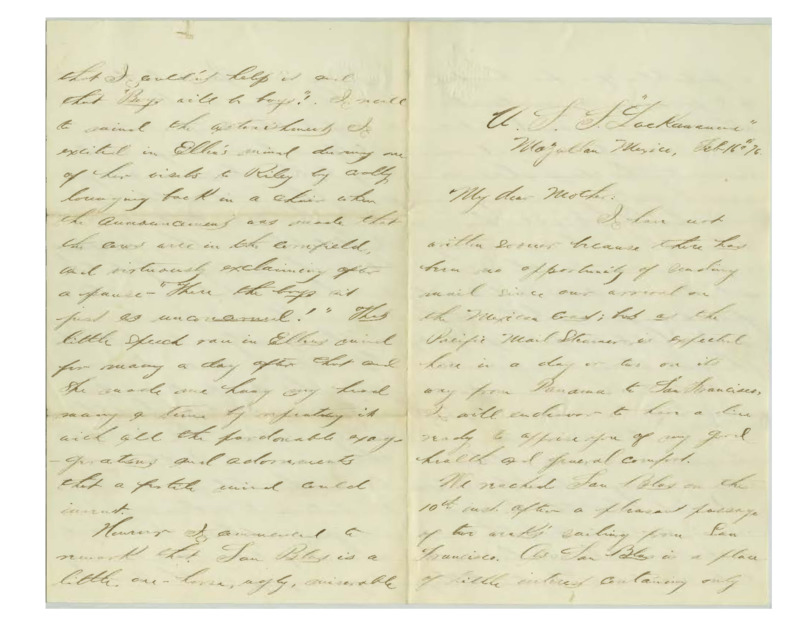 that I could'nt help it and
that "Boys will be boys". I recall
to mind the astonishment I
excited in Ellen's mind during one
of her visits to Riley by coolly
lounging back in a chair when
the announcement was made that
the cows were in the cornfield,
and virtuously exclaiming after
a pause - "There the boys sit
just as unconcerned!" This
little speech ran in Ellen's mind
for many a day after that and
she made me hang my head
many a time by repeating it
with all the pardonable exag-
-gerations and adornments
that a fertile mind could
invent.
However I commenced to
remark that San Blas is a
little, one-horse, ugly, miserable
U. S. S. "Lackawanna"
Mazatlan Mexico, Feb. 16th 76
My dear Mother.
I have not
written sooner because there has
been no opportunity of sending
mail since our arrival on
the Mexican Coast; but as the
Pacific Mail Steamer is expected
here in a day or two on its
way from Panama to San Francisco,
I will endeavor to have a line
ready to apprise you of my good
health and general comfort.
We reached San Blas on the
10th inst. after a pleasant passage
of two weeks' sailing from San
Francisco. As San Blas is a place
of little interest containing only